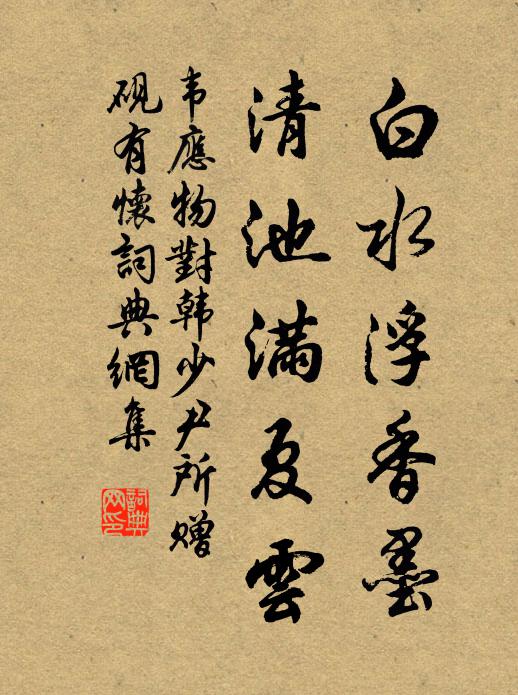 白水浮香墨
清池满夏雲
韦應物對韩少尹所赠
硯有懷詞典網集
詞典
网印